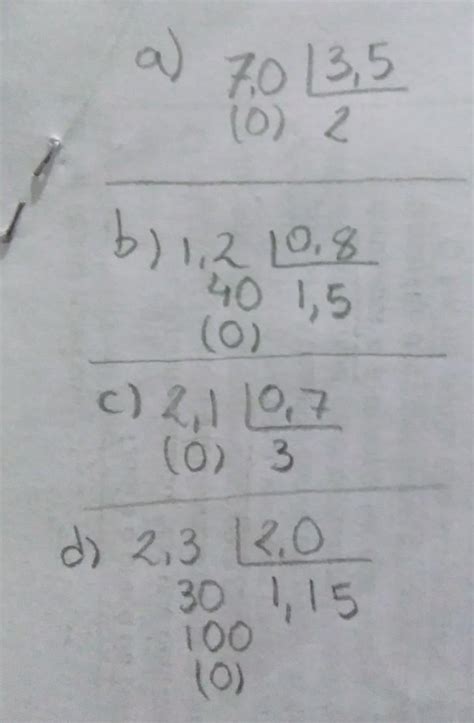 a) 7,0 3,5
(0) 2
b) 1,2 0,8
40 1,5
(0)
c) 2,1 0,7
(0) 3
d) 2,3 2,0
30 1,15
100
(0)